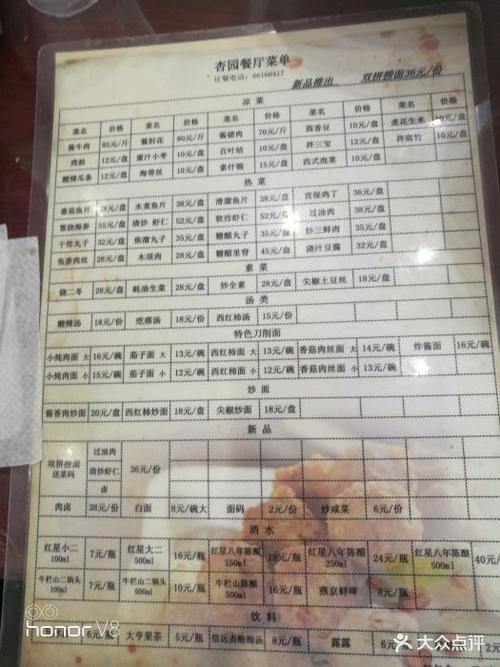 杏园餐厅菜单
订餐电话：66168417
新品推出 双拼捞面36元/份
凉菜
菜名 价格 菜名 价格 菜名 价格 菜名 价格 菜名 价格
酱牛肉 85元/斤 酱肘花 80元/斤 酱猪肉 70元/斤 茴香豆 10元/盘 煮花生米 10元/盘
烤麸 12元/盘 蜜汁小枣 10元/盘 百叶结 10元/盘 拌三宝 12元/盘 拌腐竹 10元/盘
酸辣瓜条 12元/盘 海带丝 10元/盘 素什锦 15元/盘 西式泡菜 10元/盘
热菜
番茄鱼片 元/盘 水煮鱼片 38元/盘 滑溜鱼片 38元/盘 宫保鸡丁 36元/盘
葱烧海参 55元/盘 清炒虾仁 52元/盘 软炸虾仁 52元/盘 过油肉 38元/盘
干炸丸子 32元/盘 焦溜丸子 35元/盘 糖醋丸子 35元/盘 炒三鲜肉 35元/盘
鱼香肉丝 28元/盘 木须肉 28元/盘 糖醋里脊 45元/盘 浇汁豆腐 32元/盘
素菜
烧二冬 28元/盘 蚝油生菜 28元/盘 炒全素 28元/盘 尖椒土豆丝 18元/盘
汤类
酸辣汤 18元/份 疙瘩汤 18元/份 西红柿汤 15元/份
特色刀削面
小炖肉面 大 16元/碗 茄子面 大 13元/碗 西红柿面 大 13元/碗 香菇肉丝面 大 14元/碗 炸酱面 16元/碗
小炖肉面 小 15元/碗 茄子面 小 12元/碗 西红柿面 小 12元/碗 香菇肉丝面 小 13元/碗
炒面
酱香肉炒面 20元/盘 西红柿炒面 18元/盘 尖椒炒面 18元/盘
新品
双拼捞面送菜码 过油肉 清炒虾仁 卤 36元/份
肉卤 38元/份 白面 8元/碗大 面码 2元/份 炒咸菜 6元/份
酒水
红星小二 100ml 7元/瓶 红星大二 500ml 16元/瓶 红星八年陈酿 150ml 18元/瓶 红星八年陈酿 250ml 24元/瓶 红星八年陈酿 500ml 40元/
牛栏山二锅头 100ml 7元/瓶 牛栏山二锅头 500ml 10元/瓶 牛栏山陈酿 500ml 16元/瓶 燕京鲜啤 8元/瓶
饮料
6元/瓶 大亨果茶 5元/瓶 信远斋酸梅汤 8元/瓶 露露 6元/
honor V8
大众点评